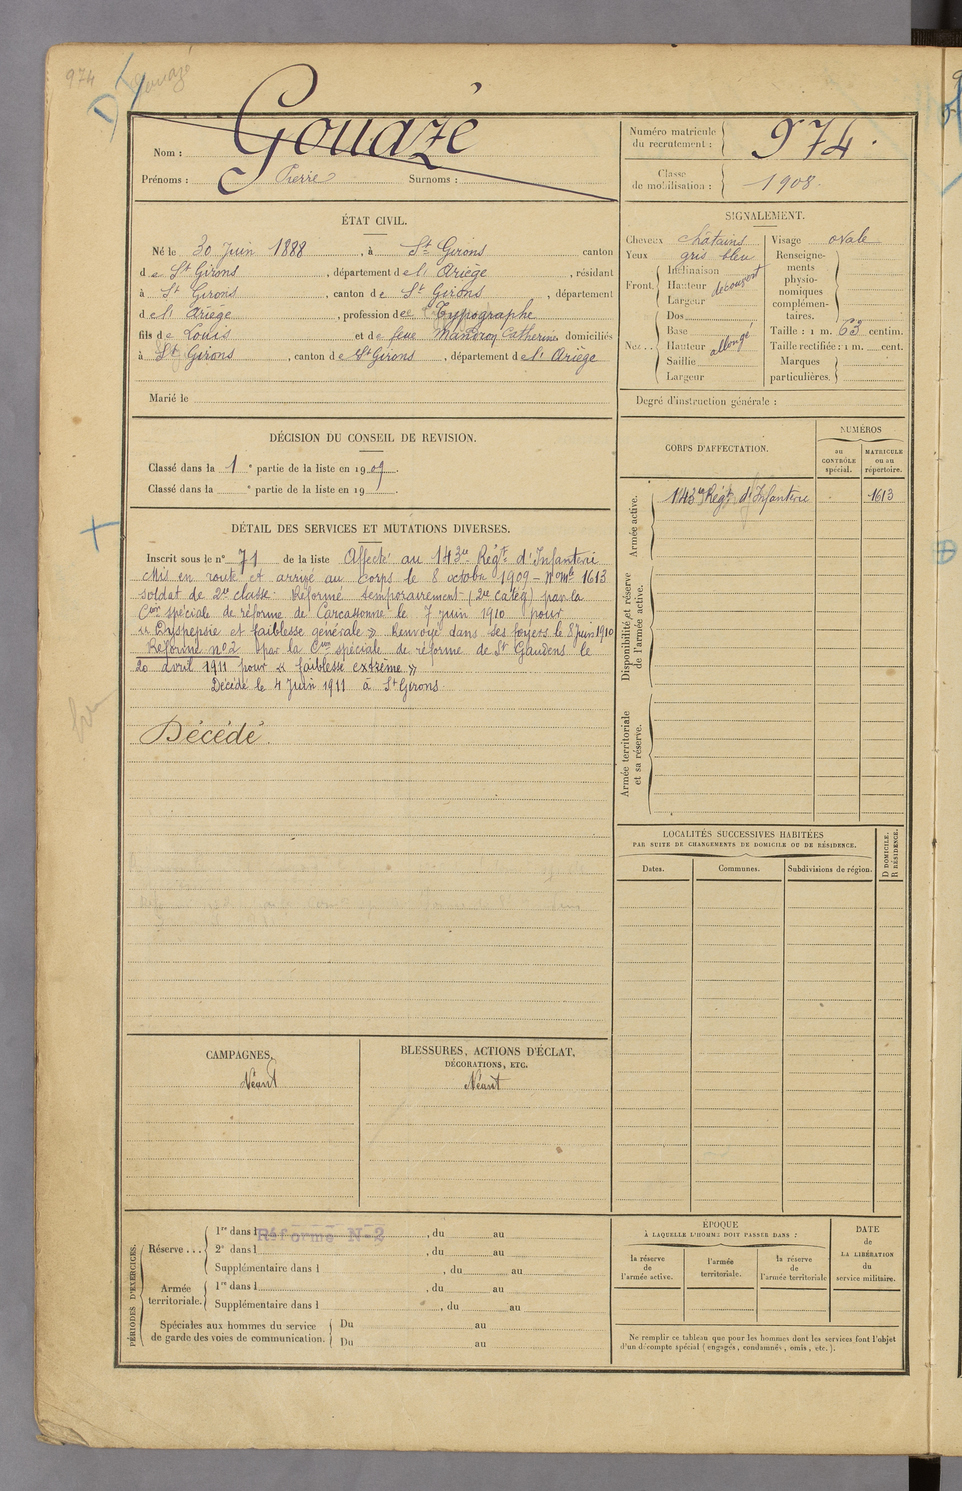 974
Gouazé
Nom : Gouazé
Prénoms : Pierre Surnoms :
Numéro matricule du recrutement : 974.
Classe de mobilisation : 1908.
ÉTAT CIVIL.
Né le 30 Juin 1888, à St Girons canton
de St Girons, département de l' Ariège, résidant
à St Girons, canton de St Girons, département
de l' Ariège, profession de Typographe
fils de Louis et de feue Catherine domiciliés
à St Girons, canton de St Girons, département de l' Ariège
Marié le
SIGNALEMENT.
Cheveux châtains
Yeux gris bleu
Front. Inclinaison
Hauteur découvert
Largeur
Nez . . Dos
Base
Hauteur allongé
Saillie
Largeur
Visage ovale
Renseigne-
ments
physio-
nomiques
complémen-
taires.
Taille : 1 m. 63 centim.
Taille rectifiée : 1 m. cent.
Marques
particulières.
Degré d'instruction générale :
DÉCISION DU CONSEIL DE REVISION.
Classé dans la 1e partie de la liste en 1909.
Classé dans la e partie de la liste en 19 .
CORPS D'AFFECTATION.
NUMÉROS
au CONTRÔLE spécial.
MATRICULE ou au répertoire.
Armée active.
143e Régt d'Infanterie 1613
Disponibilité et réserve de l'armée active.
Armée territoriale et sa réserve.
DÉTAIL DES SERVICES ET MUTATIONS DIVERSES.
Inscrit sous le n° 71 de la liste Affecté au 143e Régt d'Infanterie
Mis en route et arrivé au corps le 8 octobre 1909 - No mle 1613
soldat de 2e classe. Réformé temporairement (2e catég) par la
Con spéciale de réforme de Carcassonne le 7 juin 1910 pour
« Dyspepsie et faiblesse générale » Renvoyé dans ses foyers le 8 juin 1910
Réformé no 2 par la Con spéciale de réforme de St Gaudens le
20 avril 1911 pour « faiblesse extrême »
Décédé le 4 Juin 1911 à St Girons
Décédé.
LOCALITÉS SUCCESSIVES HABITÉES
PAR SUITE DE CHANGEMENTS DE DOMICILE OU DE RÉSIDENCE.
Dates.
Communes.
Subdivisions de région.
D DOMICILE.
R RÉSIDENCE.
CAMPAGNES.
Néant
BLESSURES, ACTIONS D'ÉCLAT,
DÉCORATIONS, ETC.
Néant
PÉRIODES D'EXERCICES.
Réserve . . . 1re dans l Réformé N° 2, du au
2e dans l , du au
Supplémentaire dans l , du au
Armée territoriale. 1re dans l , du au
Supplémentaire dans l , du au
Spéciales aux hommes du service
de garde des voies de communication.
Du au
Du au
ÉPOQUE
À LAQUELLE L'HOMME DOIT PASSER DANS :
la réserve de l'armée active.
l'armée territoriale.
la réserve de l'armée territoriale
DATE de LA LIBÉRATION du service militaire.
Ne remplir ce tableau que pour les hommes dont les services font l'objet
d'un décompte spécial (engagés, condamnés, omis, etc.).